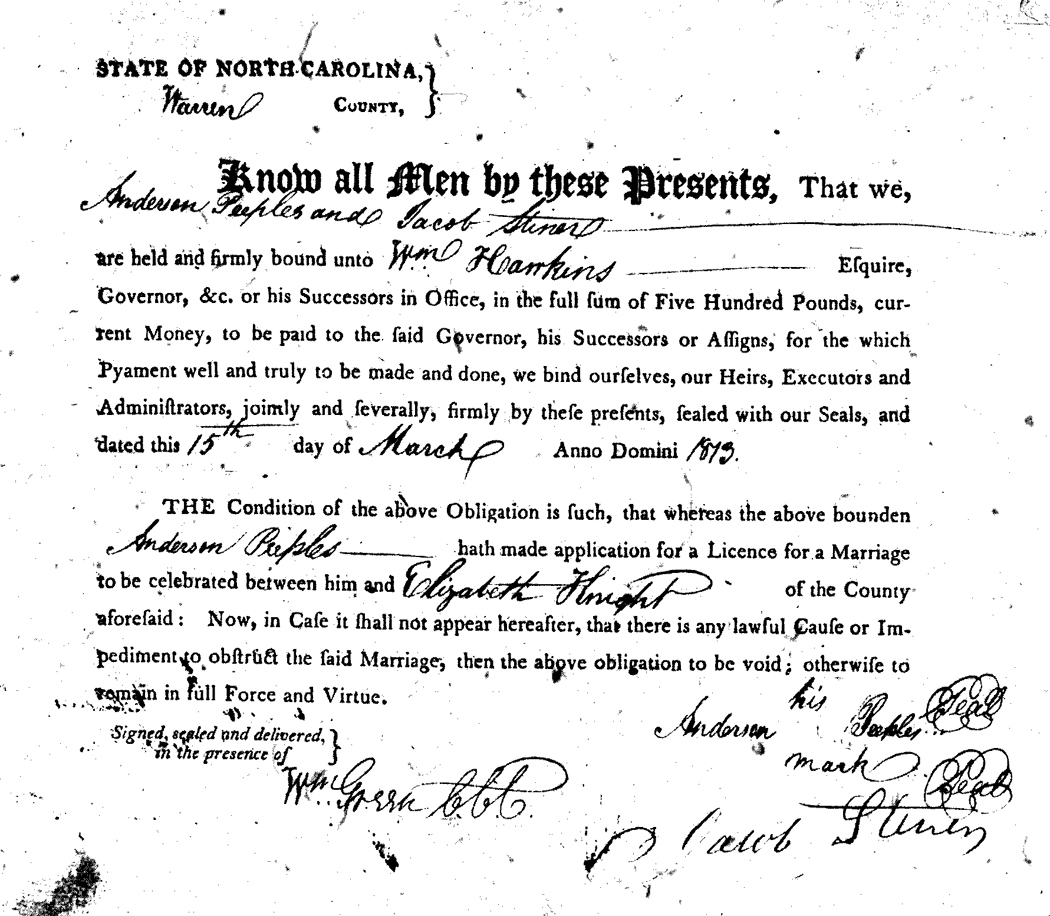 STATE OF NORTH-CAROLINA,
Warren COUNTY,
Know all Men by these Presents, That we,
Anderson Peeples and Jacob Stiner
are held and firmly bound unto Wm Hawkins Eſquire,
Governor, &c. or his Successors in Office, in the full ſum of Five Hundred Pounds, cur-
rent Money, to be paid to the ſaid Governor, his Successors or Aſſigns, for the which
Pyament well and truly to be made and done, we bind ourſelves, our Heirs, Executors and
Adminiſtrators, jointly and ſeverally, firmly by theſe preſents, ſealed with our Seals, and
dated this 15th day of March Anno Domini 1813.
THE Condition of the above Obligation is ſuch, that whereas the above bounden
Anderson Peeples hath made application for a Licence for a Marriage
to be celebrated between him and Elizabeth Knight of the County
aforeſaid: Now, in Caſe it ſhall not appear hereafter, that there is any lawful Cauſe or Im-
pediment to obſtruct the ſaid Marriage, then the above obligation to be void; otherwiſe to
remain in full Force and Virtue.
his
Anderson Peeples Seal
mark
Signed, sealed and delivered,
in the presence of
Wm. Green CCC. Seal
Jacob Stiner